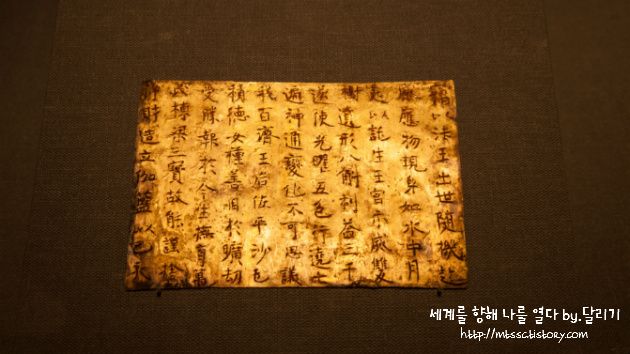 竊以法王出世隨機赴
感應物現身如水中月
是以託生王宮示滅雙
樹遺形八斛利益三千
遂使光曜五色行遶七
遍神通變化不可思議
我百濟王后佐平沙乇
積德女種善因於曠劫
受勝報於今生撫育萬
民棟梁三寶故能謹捨
淨財造立伽藍以己亥
세계를 향해 나를 열다 by.달리기
http://mtssc.tistory.com